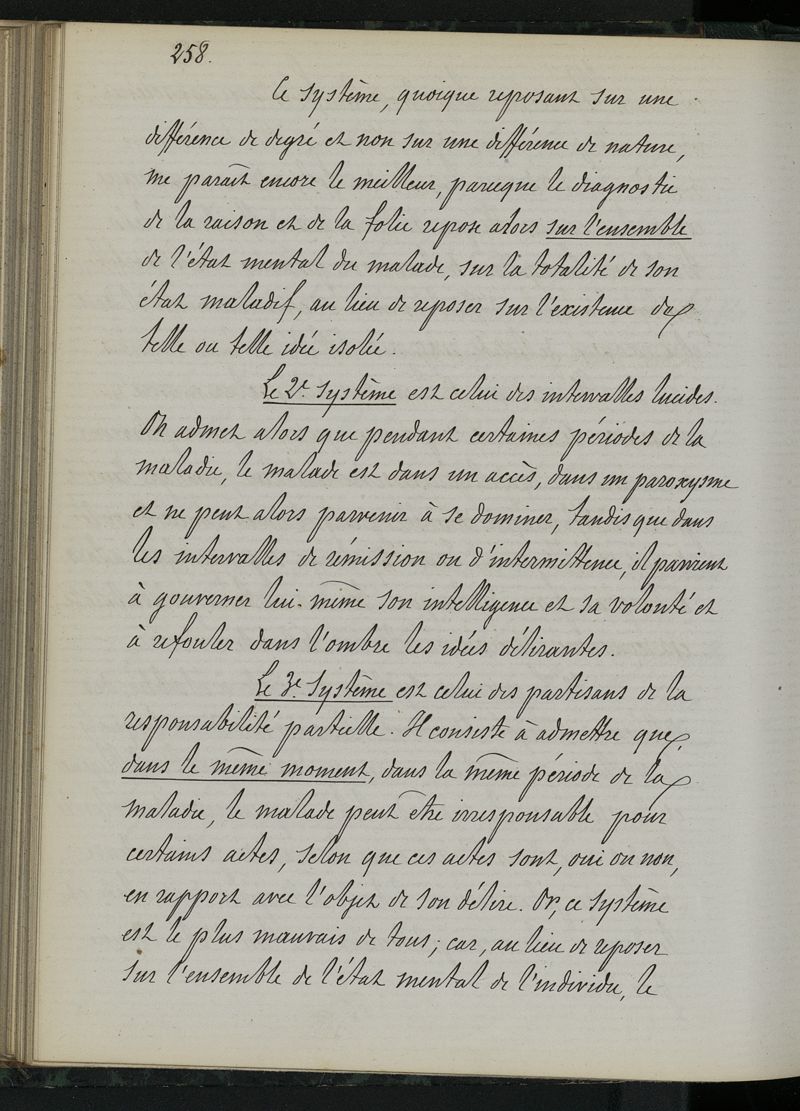 258.
Ce système, quoique reposant sur une
différence de degré et non sur une différence de nature,
me paraît encore le meilleur, parceque le diagnostic
de la raison et de la folie repose alors sur l'ensemble
de l'état mental du malade, sur la totalité de son
état maladif, au lieu de reposer sur l'existence de
telle ou telle idée isolée.
Le 2e. Système est celui des intervalles lucides.
On admet alors que pendant certaines périodes de la
maladie, le malade est dans un accès, dans un paroxysme
et ne peut alors parvenir à se dominer, tandis que dans
les intervalles de rémission ou d'intermittence, il parvient
à gouverner lui-même son intelligence et sa volonté et
à refouler dans l'ombre les idées délirantes.
Le 3e. Système est celui des partisans de la
responsabilité partielle. Il consiste à admettre que,
dans le même moment, dans la même période de la
maladie, le malade peut être irresponsable pour
certains actes, selon que ces actes sont, oui ou non,
en rapport avec l'objet de son délire. Or, ce système
est le plus mauvais de tous; car, au lieu de reposer
sur l'ensemble de l'état mental de l'individu, le